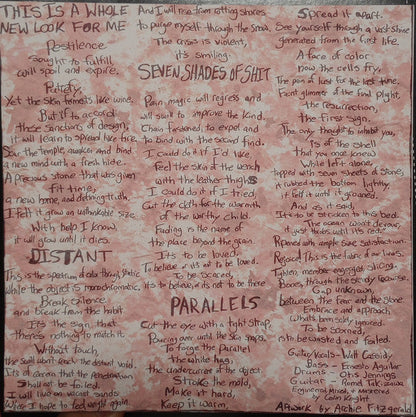 THIS IS A WHOLE
NEW LOOK FOR ME
Pestilence
sought to fulfill
will spoil and expire.
Putrefy,
Yet the skin ferments like wine,
But if to accord
these sanctions of design,
it will learn to spread like fire.
Sew the temple, awaken and bind
a new mind with a fresh hide.
A precious stone that was given
fit time,
a new home, and defining truth,
I felt it grow an unthinkable size.
With help I know
it will grow until it dies.
DISTANT
This is the spectrum of color found, static
While the object is monochromatic.
Break silence
and break from the habit.
It's the sign that
there's nothing to match it.
Without touch,
the soil won't seek the distant void.
It's of caress that the penetration
Shall not be foiled.
I will live on wasent sands
Where I hope to feel weight again.
And I will rise from rotting shores
to purge myself through the snow.
The crisis is violent,
it's smiling.
SEVEN SHADES OF SHIT
Pain, magic will regress and
will suit to improve the kind.
Chain fashioned, to expel and
to bind with the second find.
I could do it if I'd like,
Feel the skin of the wench
with the leather thighs
I could do it if I tried.
Cut the cloth for the warmth
of the worthy child.
Fading is the name of
the place beyond the grain.
It's to be loved.
To believe it's not to be loved.
I've scored,
it's to believe it's not to be there
PARALLELS
Cut the eye with a tight strap,
Pouring over until the skin snaps.
To forge the parallel
the white hag,
the undercurrent of the object.
Stroke the mold,
Make it hard,
Keep it warm,
Spread it apart.
See yourself through a vast shine
generated from the first life.
A face of color
now the cells fry.
The pen of lust for the last time.
Front glimpse of the final plight,
the resurrection,
the first sign.
The only thought to inhabit you,
Is of the shell
that you once knew.
While left alone,
tapped with seven sheets of stone,
it rubbed the bottom lightly,
it fell it until it groaned.
And as it said,
It's to be stricken to this bed.
The ocean can't devour,
it just holds until it's dead.
Ripened with ample sure satisfaction.
Rejoice! This is the fabric of our lives.
Tighten, member engorged slicing,
Bound through the study because
God unknown,
between the fear and the stone.
Embrace and approach
what's born sickly ignored.
To be scorned,
is to be wasted and failed.
Guitar/Vocals - Walt Cassidy
Bass - Ernesto Aguilar
Drums - Otis Jennings
Guitar - Romd Tsikizawa
Engineered, mixed, & Mastered
by Colin Knight
Artwork by Archie Fitzgerald